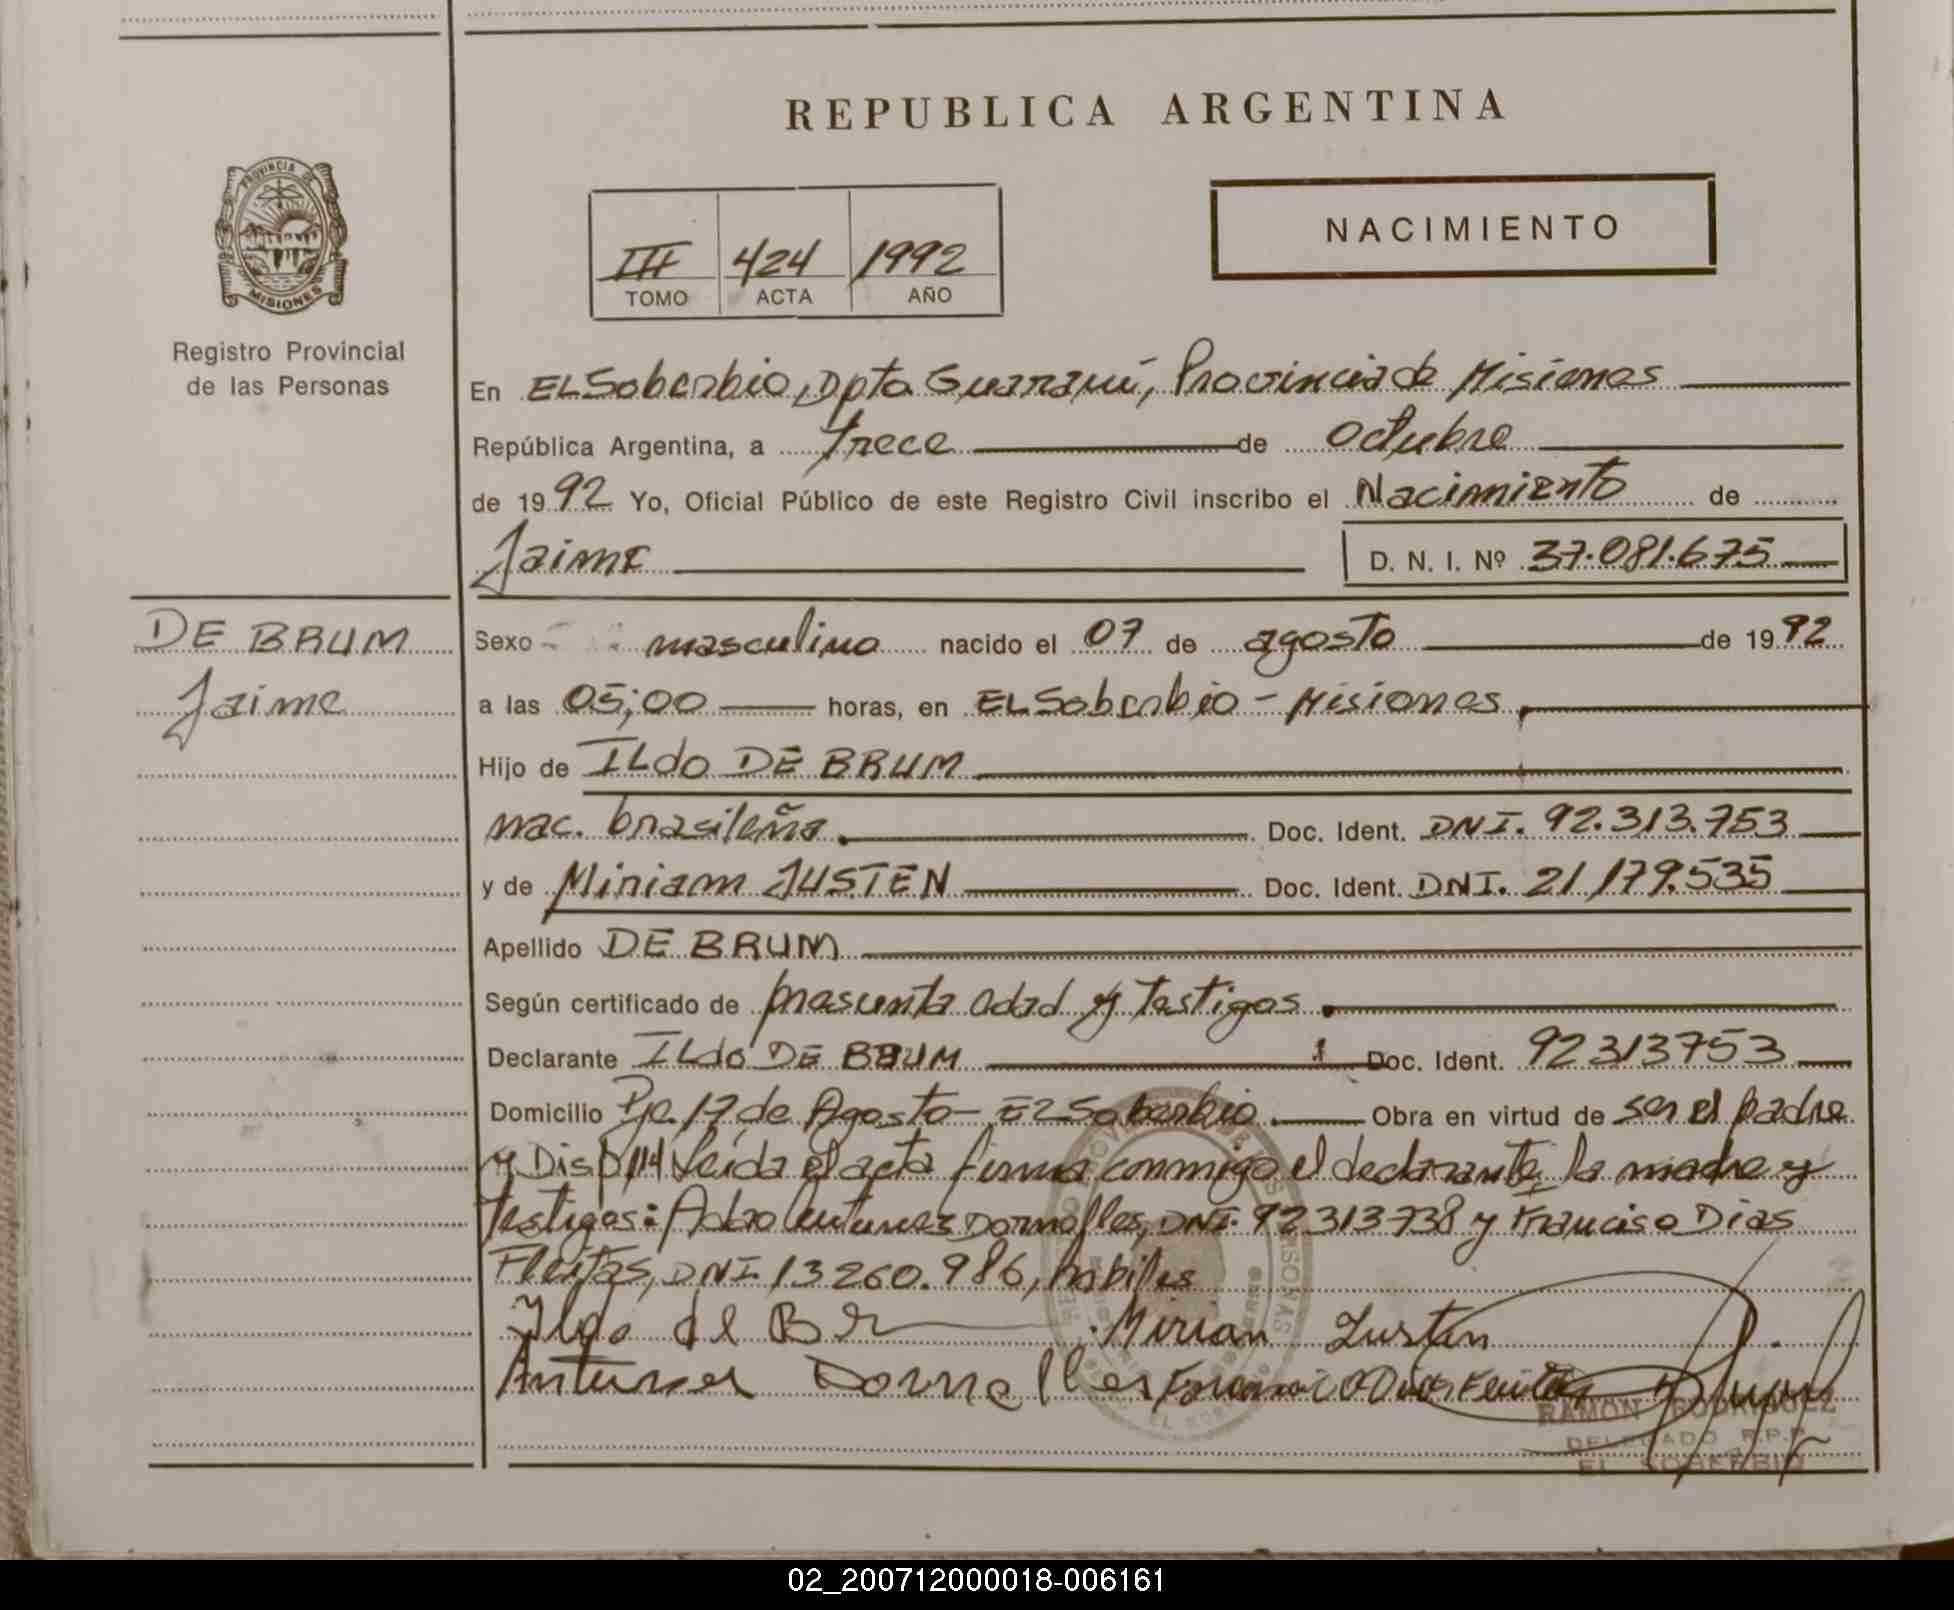 REPUBLICA ARGENTINA
PROVINCIA DE
MISIONES
Registro Provincial
de las Personas
NACIMIENTO
III 424 1992
TOMO ACTA AÑO
En EL Soberbio, Dpto Guaraní, Provincia de Misiones
República Argentina, a trece de octubre
de 1992 Yo, Oficial Público de este Registro Civil inscribo el Nacimiento de
Jaime D. N. I. Nº 37.081.675
DE BRUM
Jaime
Sexo masculino nacido el 07 de agosto de 1992
a las 05;00 horas, en EL Soberbio - Misiones
Hijo de ILdo DE BRUM
nac. brasileña. Doc. Ident. DNI. 92.313.753
y de Miriam JUSTEN Doc. Ident. DNI. 21.179.535
Apellido DE BRUM
Según certificado de presunta edad y testigos.
Declarante ILdo DE BRUM Doc. Ident. 92313753
Domicilio Pje. 17 de Agosto - El Soberbio. Obra en virtud de ser el padre
y Disp 114 Leída el acta firma conmigo el declarante, la madre y
testigos: Antunez Dornelles, DNI. 92313738 y Francisco Dias
Fleitas, DNI. 13260.986, habiles
Ildo de Br
Mirian Justen
Antunes Dornelles
RAMON RODRIGUEZ
DELEGADO R.P.P.
EL SOBERBIO
02_200712000018-006161